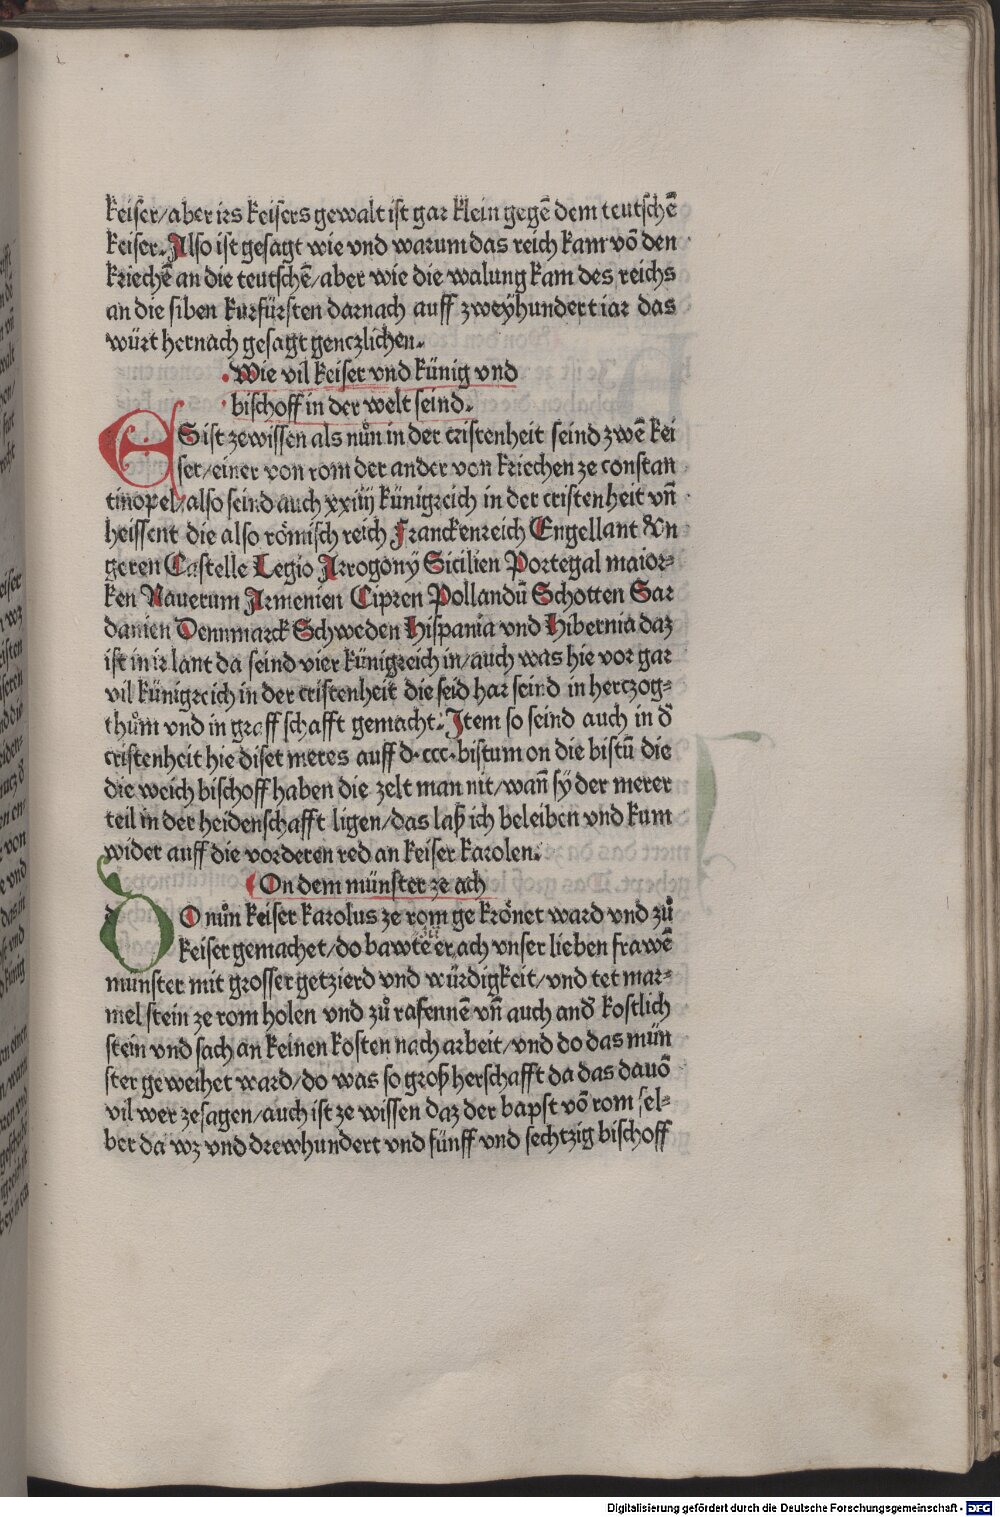 keiser/aber irs keisers gewalt ist gar klein gegē dem teutschē
keiser. Also ist gesagt wie vnd warum das reich kam vō den
kriechē an die teutschē/aber wie die walung kam des reichs
an die siben kurfürsten darnach auff zweyhundert iar das
würt hernach gesagt genczlichen.
Wie vil keiser vnd künig vnd
bischoff in der welt seind.
ES ist ze wissen als nůn in der cristenheit seind zwē kei
ser/einer von rom der ander von kriechen ze constan
tinopel/also seind auch xxiiij künigreich in der cristenheit vn̄
heissent die also römisch reich Franckenreich Engellant Vn
geren Castelle Legio Arrogony Sicilien Portegal maior⸗
ken Nauerum Armenien Cipren Pollandū Schotten Sar
danien Dennmarck Schweden Hispania vnd Hibernia daz
ist in ir lant da seind vier künigreich in/auch was hie vor gar
vil künigreich in der cristenheit die seid har seind in hertzog⸗
thům vnd in graff schafft gemacht. Item so seind auch in d̄
cristenheit hie diset meres auff d·cccc·bistum on die bistū die
die weich bischoff haben die zelt man nit/wan̄ sÿ der merer
teil in der heidenschafft ligen/das laß ich beleiben vnd kum
wider auff die vorderen red an keiser karolen.
On dem münster ze ach
DO nůn keiser karolus ze rom ge krönet ward vnd zů
keiser gemachet/do bawte er zů ach vnser lieben frawē
munster mit grosser getzierd vnd würdigkeit/vnd tet mar⸗
mel stein ze rom holen vnd zů rafennē vn̄ auch and̄ kostlich
stein vnd sach an keinen kosten nach arbeit/vnd do das mün
ster geweihet ward/do was so groß herschafft da das dauō
vil wer ze sagen/auch ist ze wissen daz der bapst vō rom sel⸗
ber da wz vnd drewhundert vnd fünff vnd sechtzig bischoff
Digitalisierung gefördert durch die Deutsche Forschungsgemeinschaft - DFG